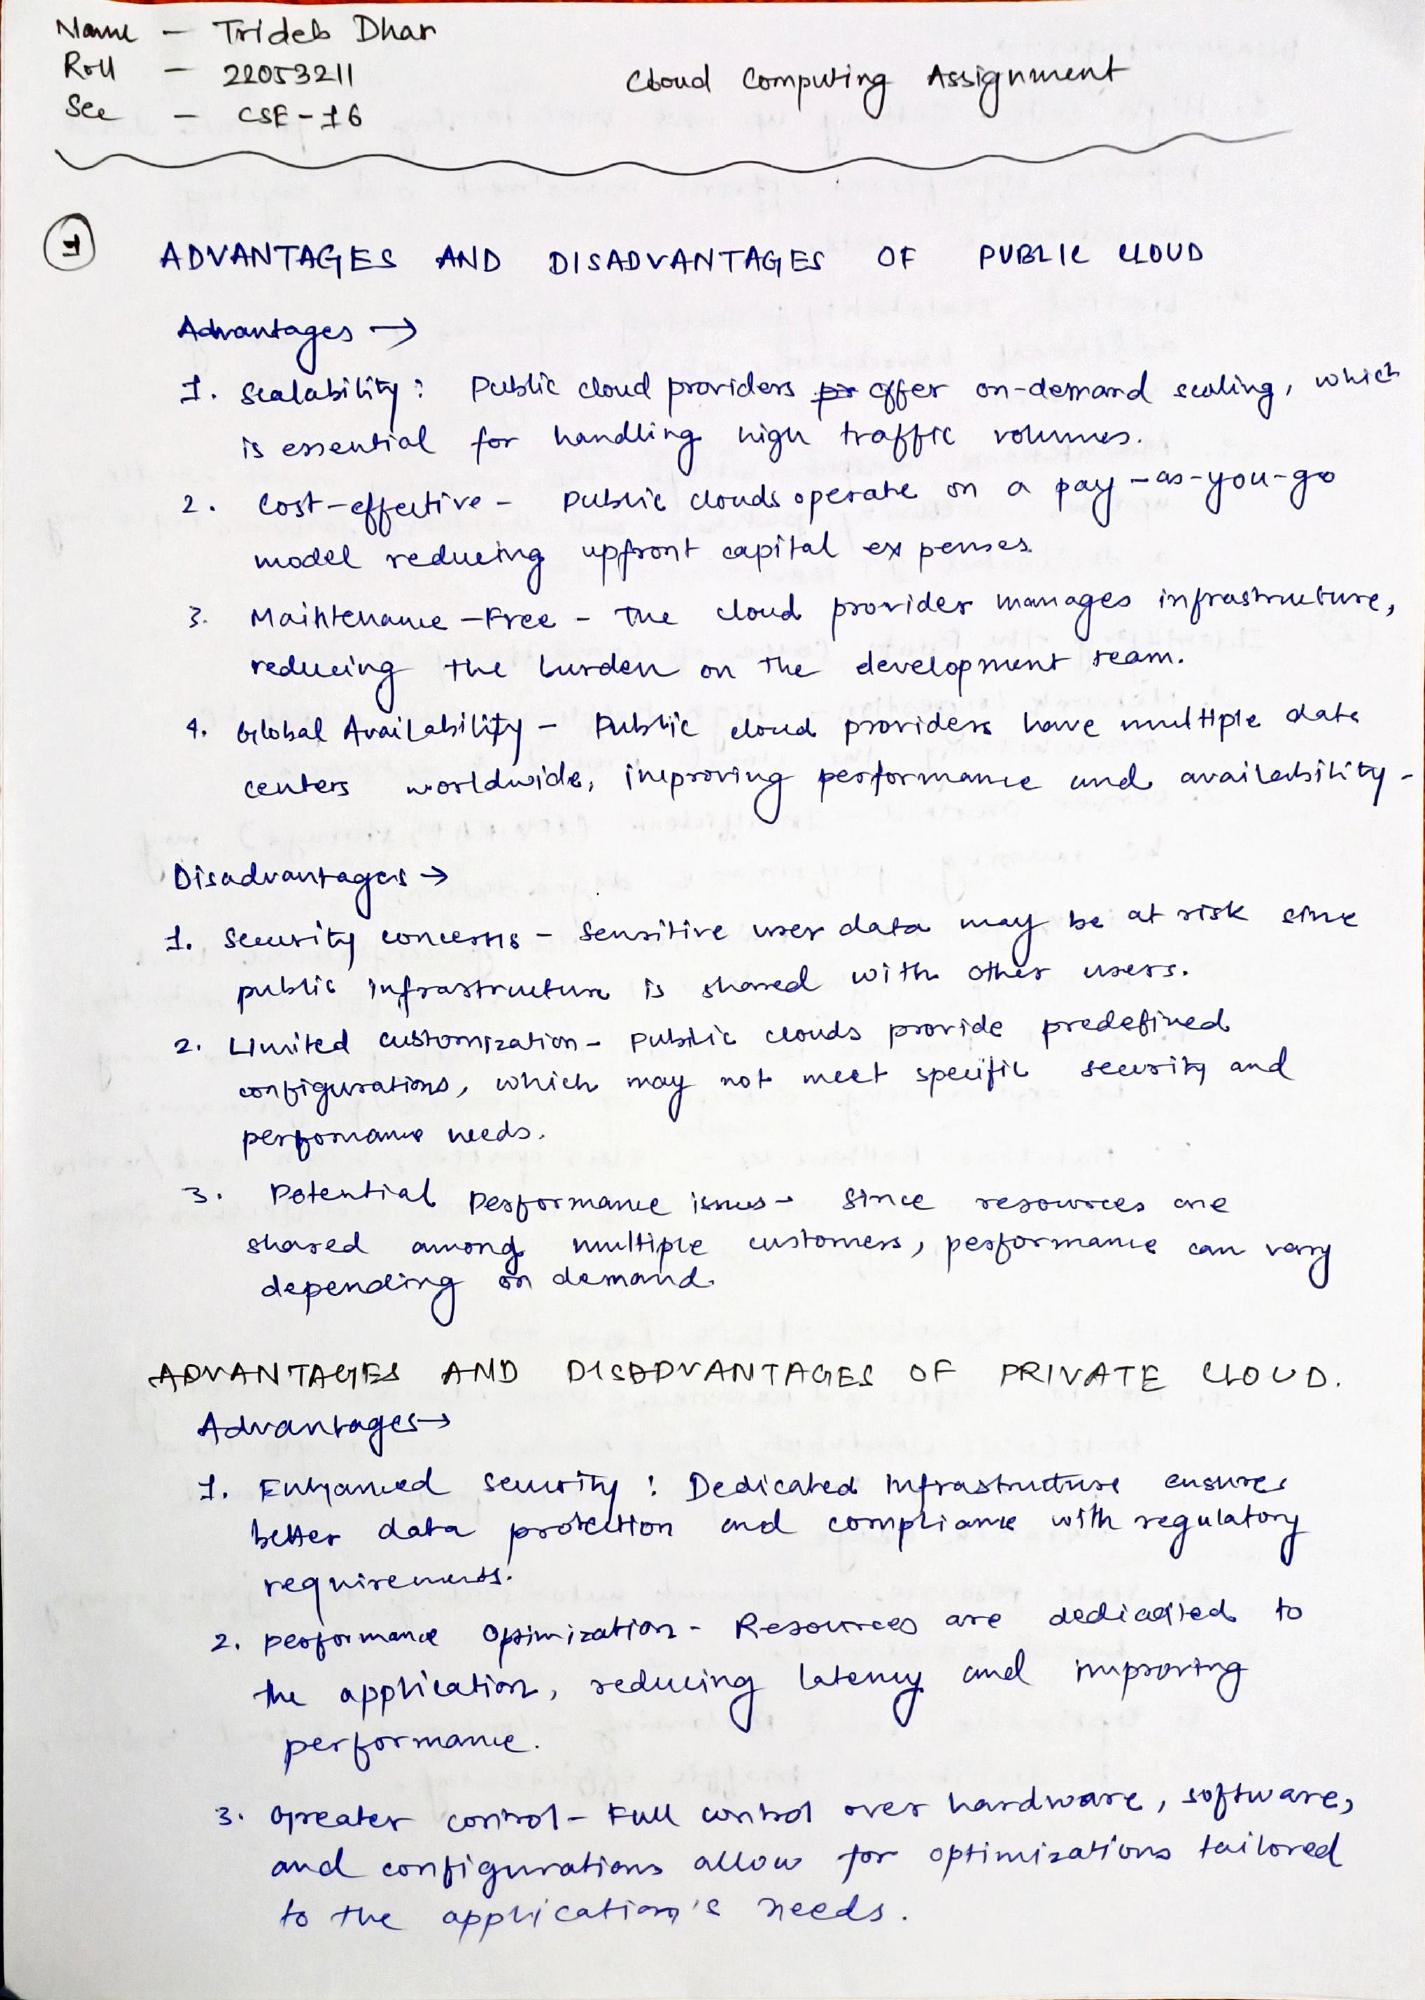 Name - Trideb Dhar
Roll - 22053211
Sec - CSE-16
Cloud Computing Assignment
1
ADVANTAGES AND DISADVANTAGES OF PUBLIC CLOUD
Advantages →
1. Scalability: Public cloud providers offer on-demand scaling, which
is essential for handling high traffic volumes.
2. Cost-effective - Public clouds operate on a pay-as-you-go
model reducing upfront capital expenses.
3. Maintenance-Free - The cloud provider manages infrastructure,
reducing the burden on the development team.
4. Global Availability - Public cloud providers have multiple data
centers worldwide, improving performance and availability.
Disadvantages →
1. Security concerns - Sensitive user data may be at risk since
public infrastructure is shared with other users.
2. Limited customization - Public clouds provide predefined
configurations, which may not meet specific security and
performance needs.
3. Potential Performance issues - Since resources are
shared among multiple customers, performance can vary
depending on demand.
ADVANTAGES AND DISADVANTAGES OF PRIVATE CLOUD.
Advantages →
1. Enhanced Security: Dedicated infrastructure ensures
better data protection and compliance with regulatory
requirements.
2. performance Optimization - Resources are dedicated to
the application, reducing latency and improving
performance.
3. Greater control - Full control over hardware, software,
and configurations allow for optimizations tailored
to the application's needs.